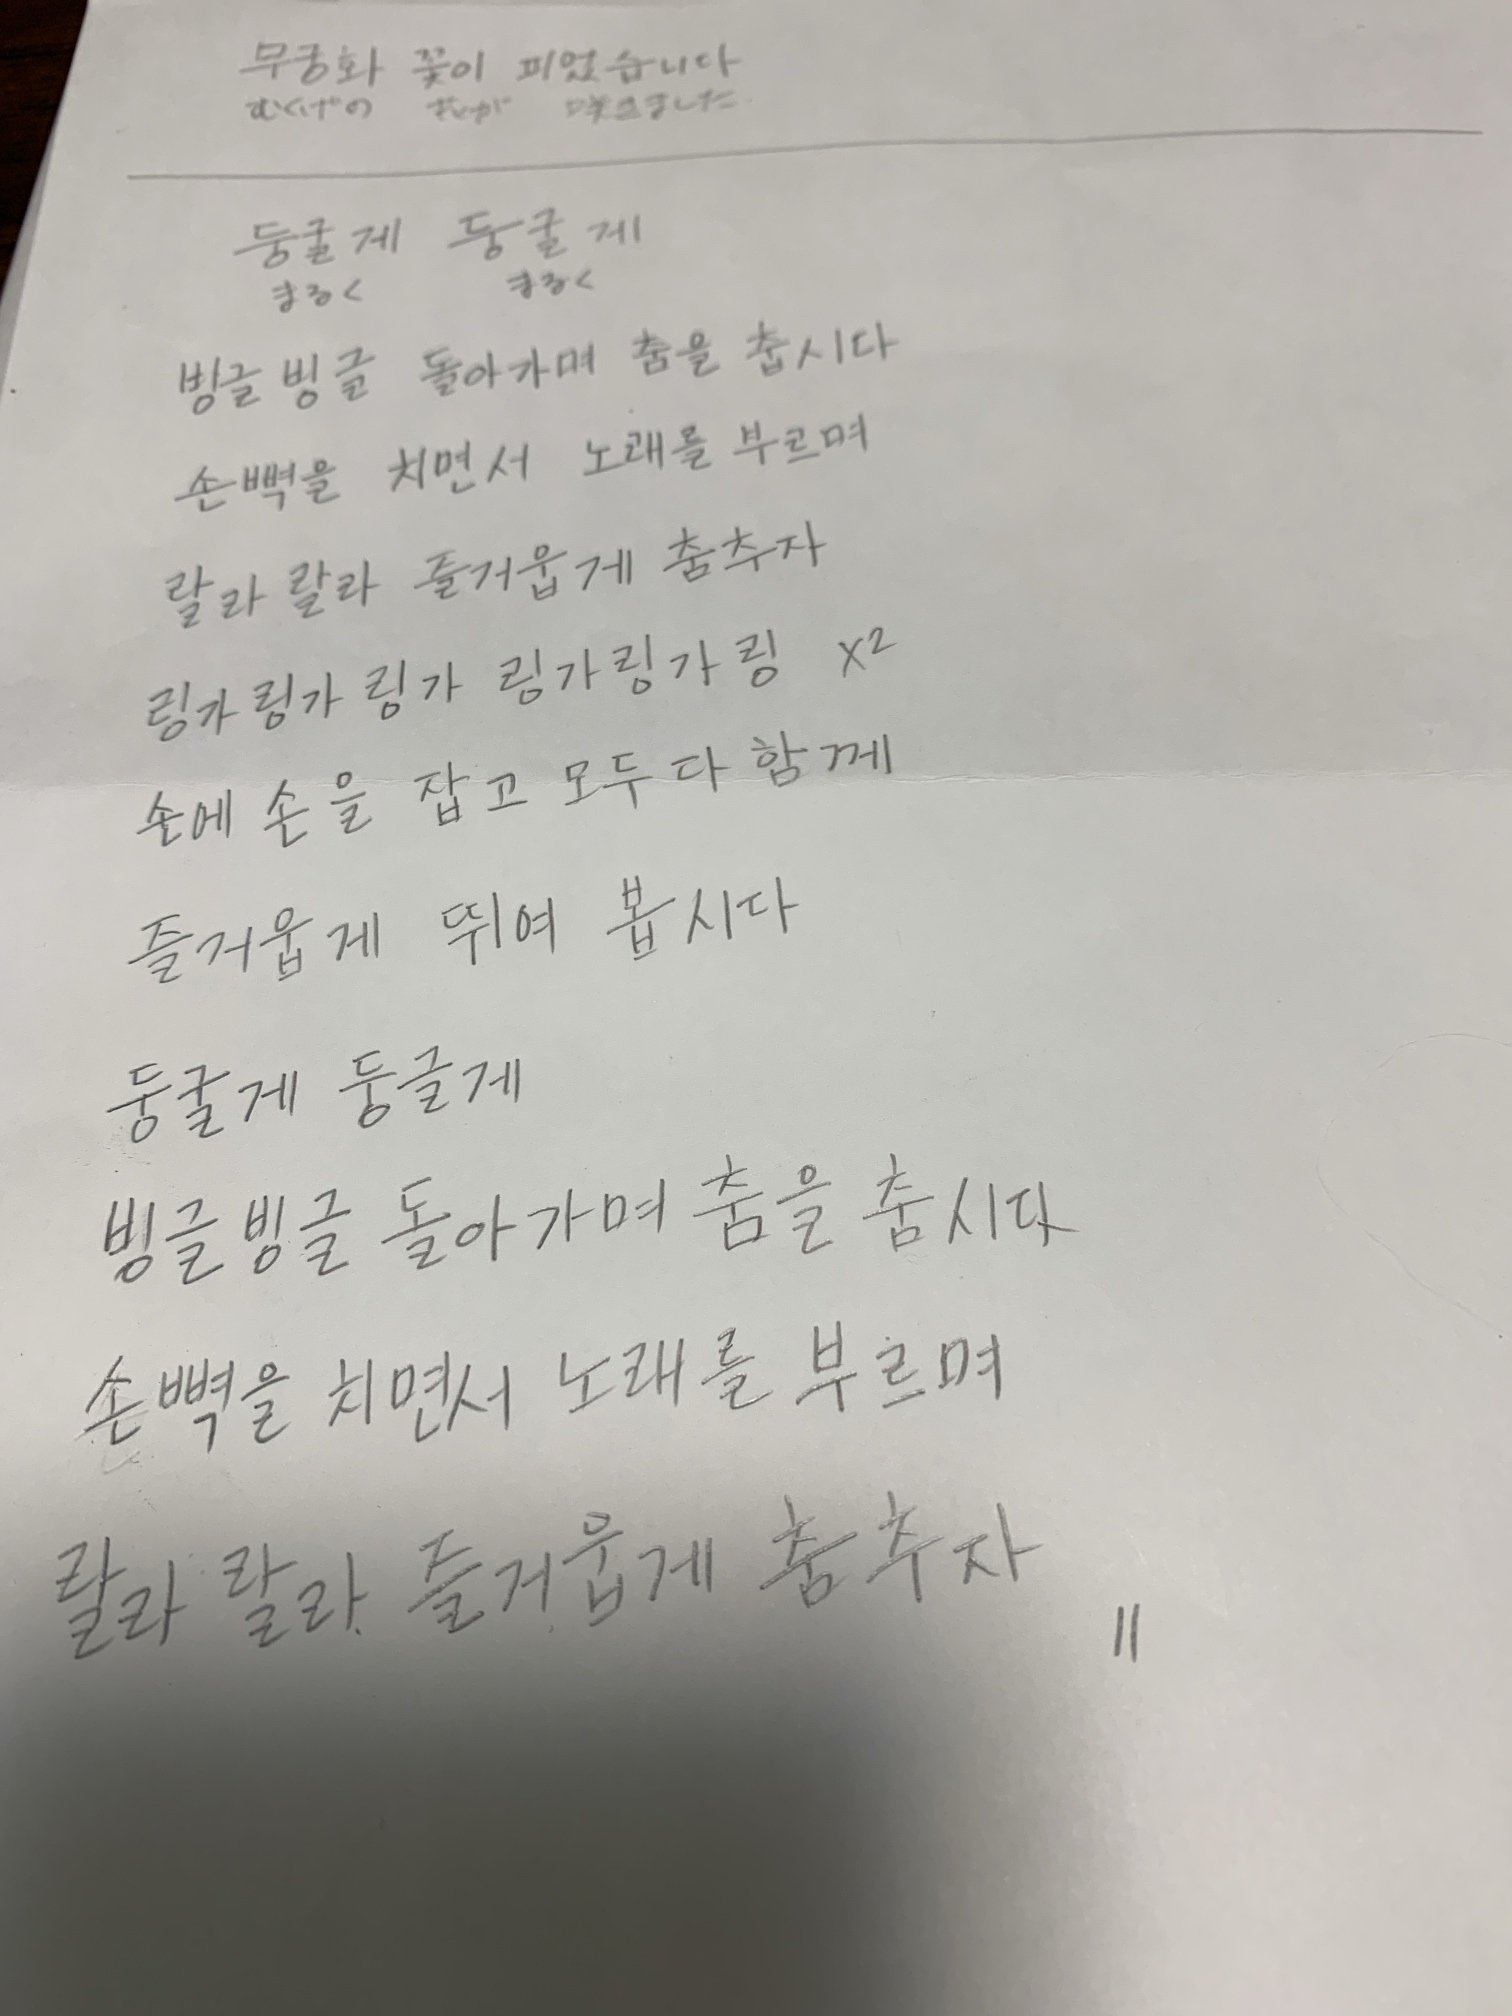 무궁화 꽃이 피었습니다
むくげの 花が 咲きました
둥굴게 둥굴게
まるく まるく
빙글빙글 돌아가며 춤을 춥시다
손뼉을 치면서 노래를 부르며
랄라 랄라 즐거웁게 춤추자
링가링가링가 링가링가링 X2
손에 손을 잡고 모두다함께
즐거웁게 뛰여 봅시다
둥굴게 둥글게
빙글빙글 돌아가며 춤을 춤시다
손뼉을 치면서 노래를 부르며
랄라 랄라 즐거웁게 춤추자